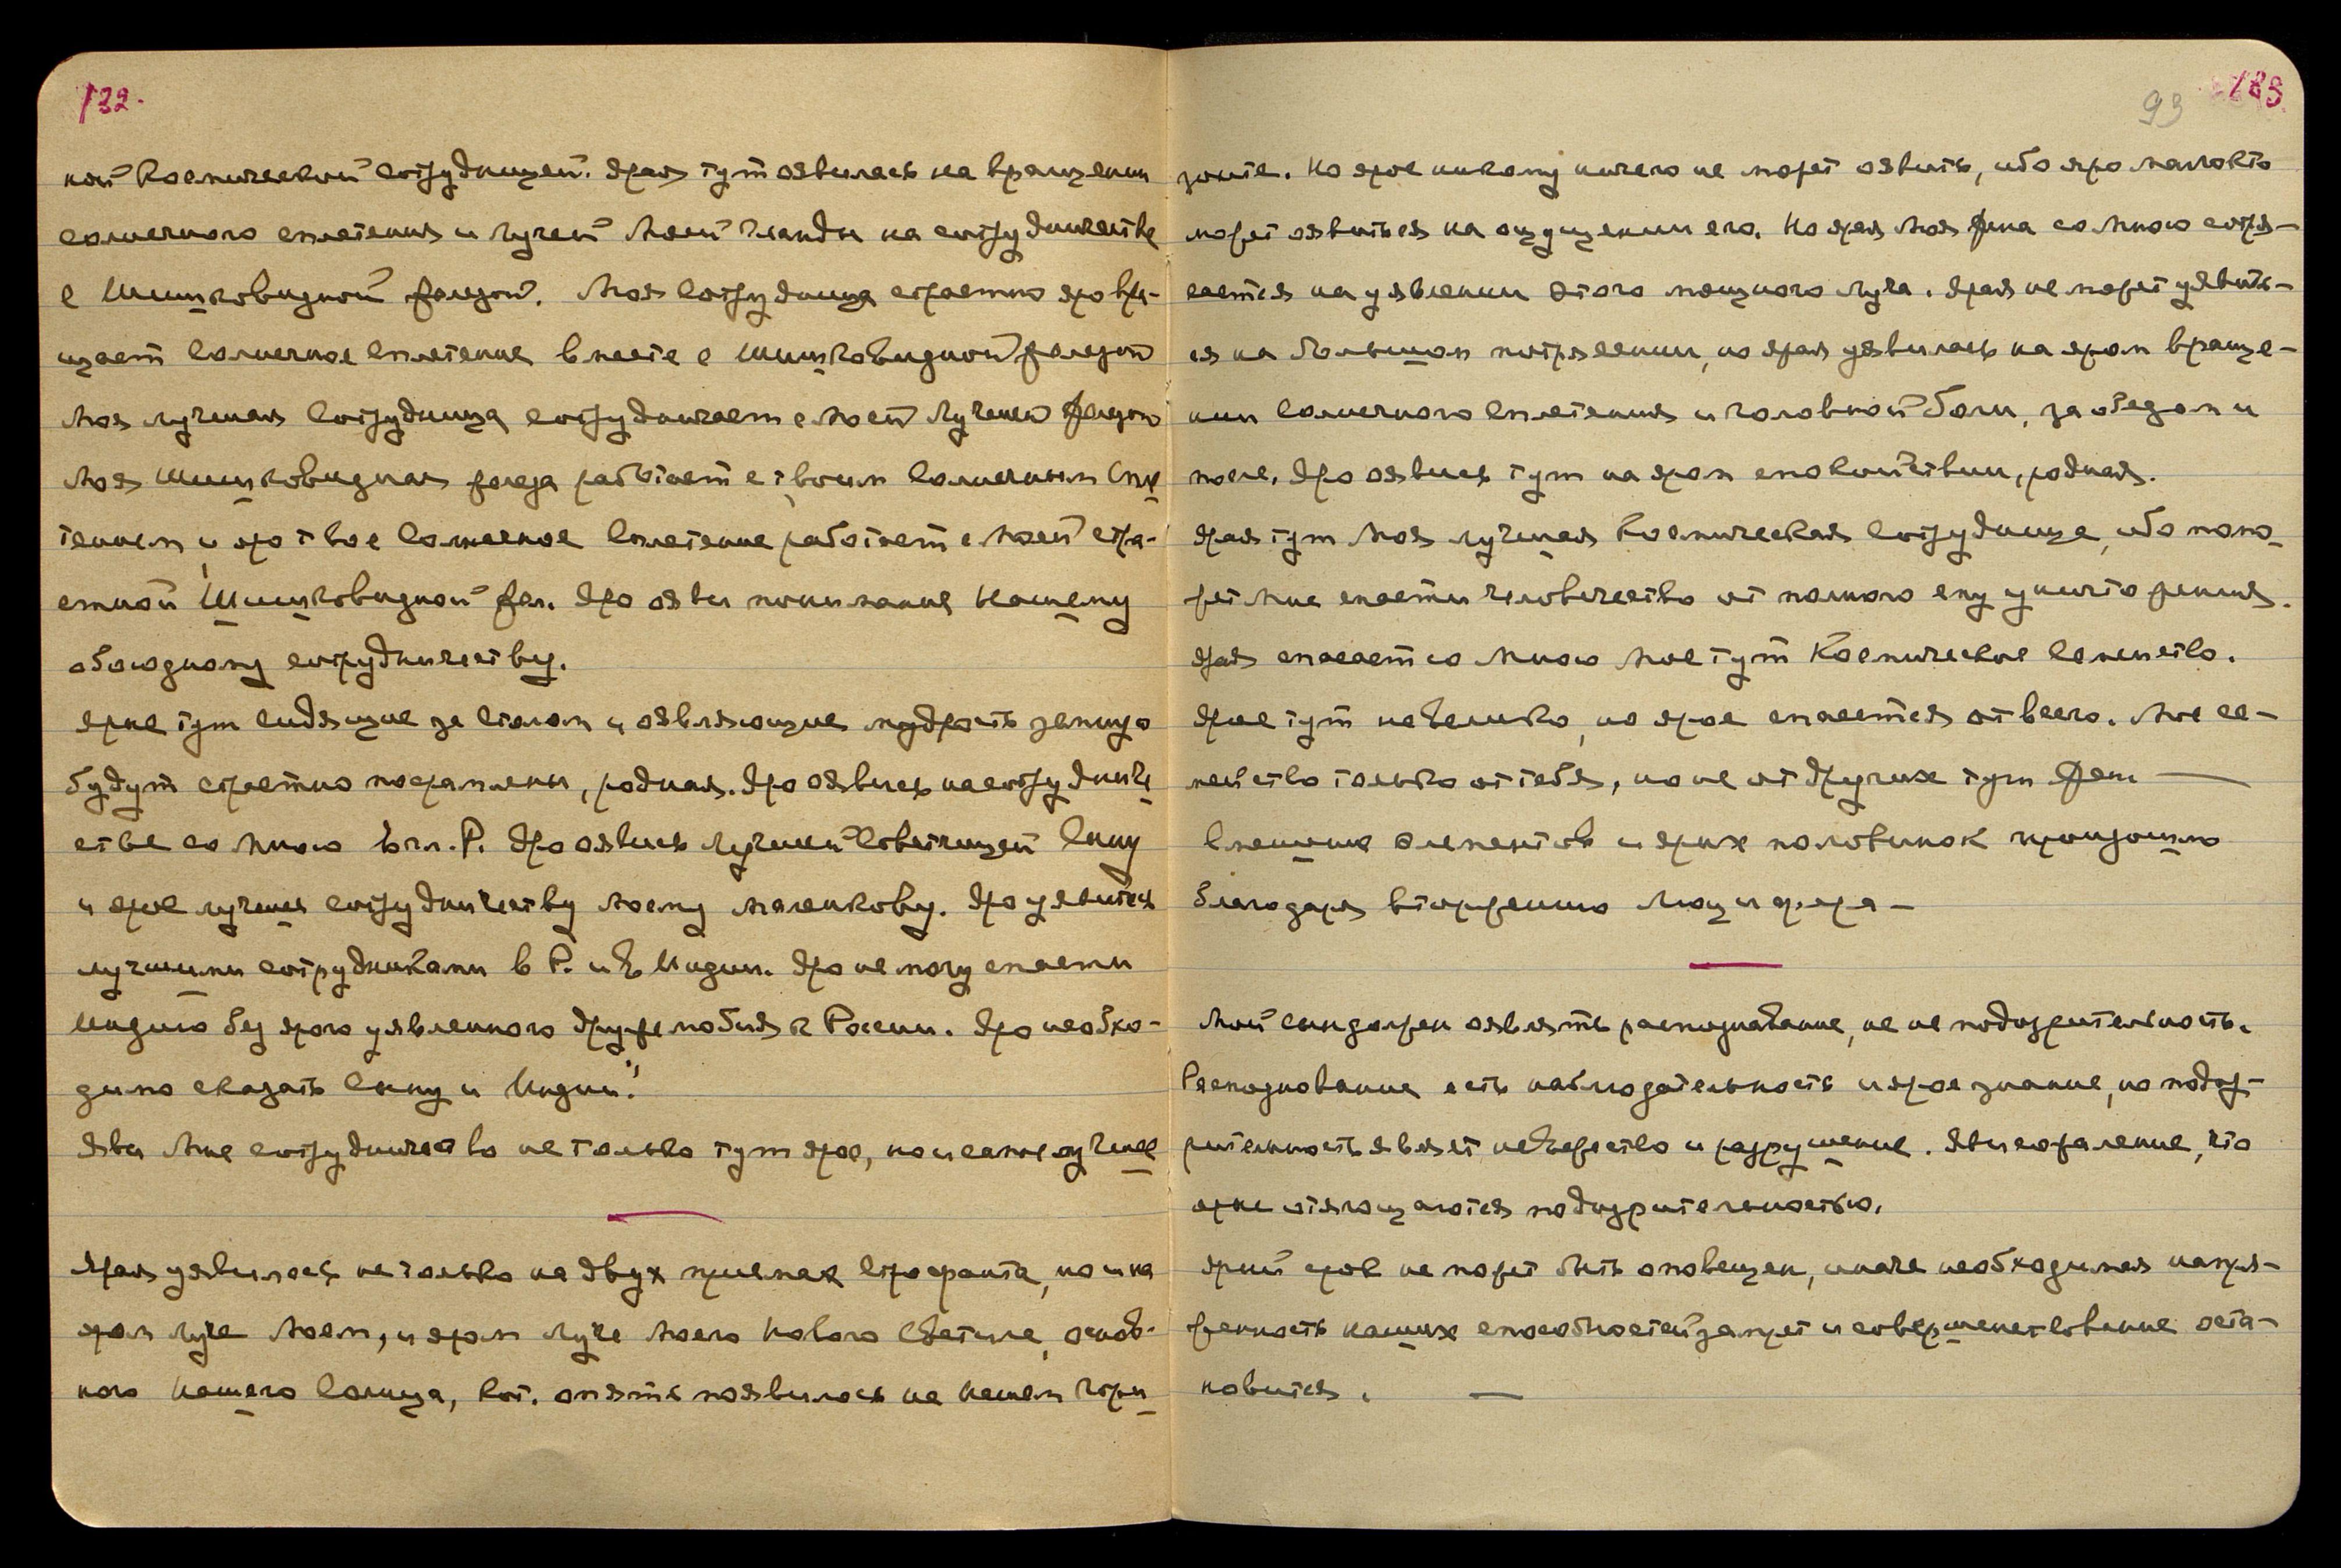 132.
ной Космической сотрудницей. Ярая тут оявилась на вращении
солнечного сплетения и лучей Моей Гланды на сотрудничестве
с Шишковидной железой. Моя Сотрудница страстно яро вра-
щает Солнечное Сплетение вместе с Шишковидной железой
Моя лучшая Сотрудница сотрудничает с Моей Лучшей железой
Моя Шишковидная железа работает с твоим Солнечным Спле
тением и яро твое Солнечное Сплетение работает с Моей стра-
стной Шишковидной жел. Яро яви понимание Нашему
обоюдному сотрудничеству.
Ярые тут сидящие за столом и оявляющие мудрость
будут страстно посрамлены, родная. Яро оявись на сотрудниче
стве со Мною в Р. Яро оявись лучшей Советчицей Сыну
и ярое лучшее сотрудничеству Моему Маленкову. Яро уявится
лучшими сотрудниками в Р. и в Индии. Яро не могу спасти
Индию без ярого уявленного дружелюбия к России. Яро необхо-
димо сказать Сыну и Индии."
Яви Мне сотрудничество не только тут ярое, но и самое лучшее
Ярая уявилась не только на двух приемах Строфанта, но и на
яром луче Моем, и яром луче Моего Нового Светила, основ-
ного Нашего Солнца, кот. опять появилось на Нашем Гори
93 133.
зонте. Но ярое никому ничего не может оявить, ибо яро мало кто
может оявиться на ощущении его. Но ярая Моя Жена со Мною сотря-
сается на уявлении этого мощного луча. Ярая не может уявить-
ся на большом потрясении, но ярая уявилась на яром враще-
нии Солнечного Сплетения и головной боли, за обедом и
после. Яро оявись тут на яром спокойствии, родная.
Ярая тут Моя лучшая Космическая Сотрудница, ибо помо-
жет Мне спасти человечество от полного ему уничтожения.
Ярая спасает со Мною Мое тут Космическое Семейство.
Ярое тут невелико, но ярое спасется от всего. Мое се-
мейство только от тебя, но не от других тут Жен —
Смешение элементов и ярых половинок произошло
благодаря вторжению Люцифера —
Мой синдолжен оявлять распознавание, но не подозрительность.
Распознавание есть наблюдательность и ярое знание, но подоз-
рительность являет невежество и разрушение. Яви сожаление, что
ярые отягощаются подозрительностью.
Ярый срок не может быть оповещен, иначе необходимая напря-
женность наших способностей замрет и совершенствование оста-
новится. —